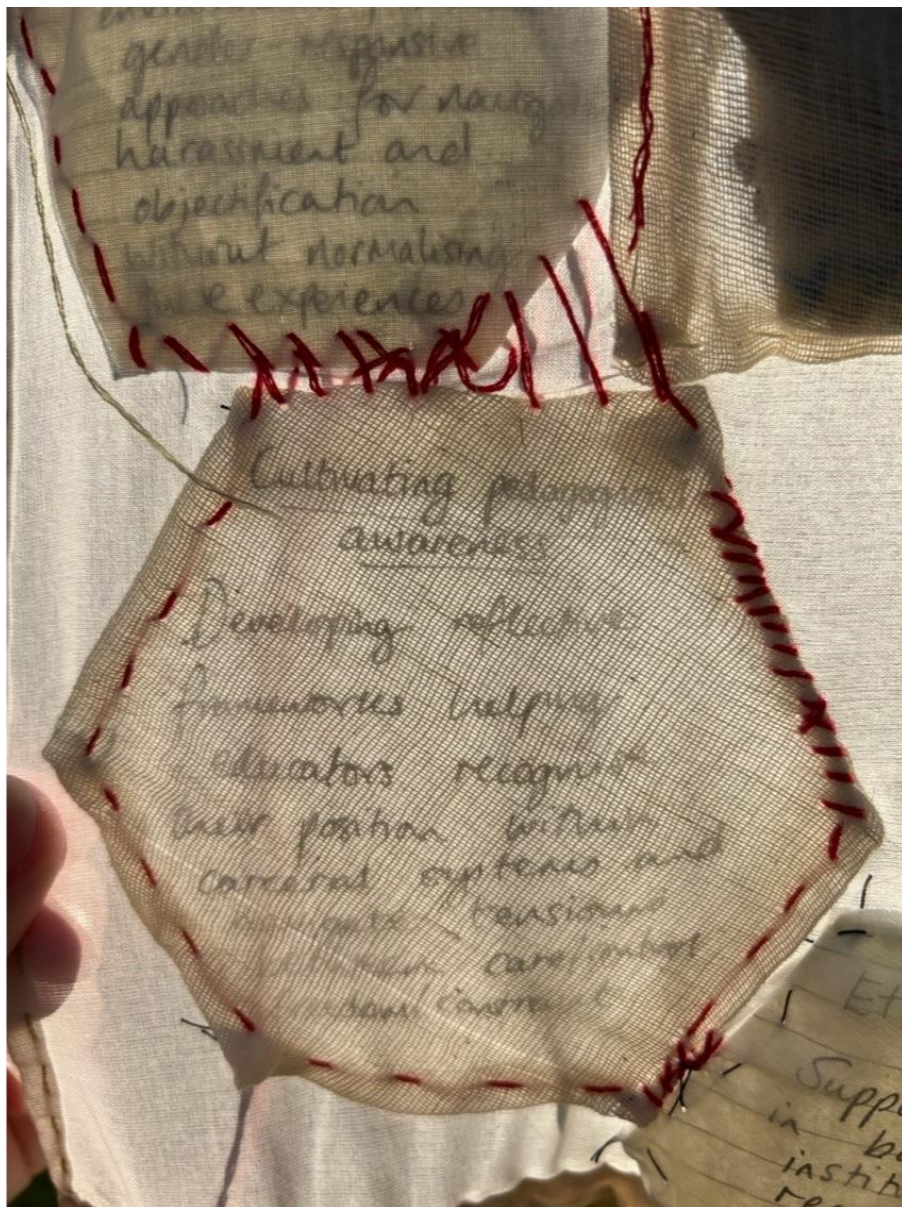 gender responsive
approaches for
harassment and
objectification
without normalising
experiences
Cultivating
awareness
Developing reflective
frameworks helping
educators recognise
their position within
carceral systems and
navigate tensions
between care/control
freedom/constraint
Supp
in
instit